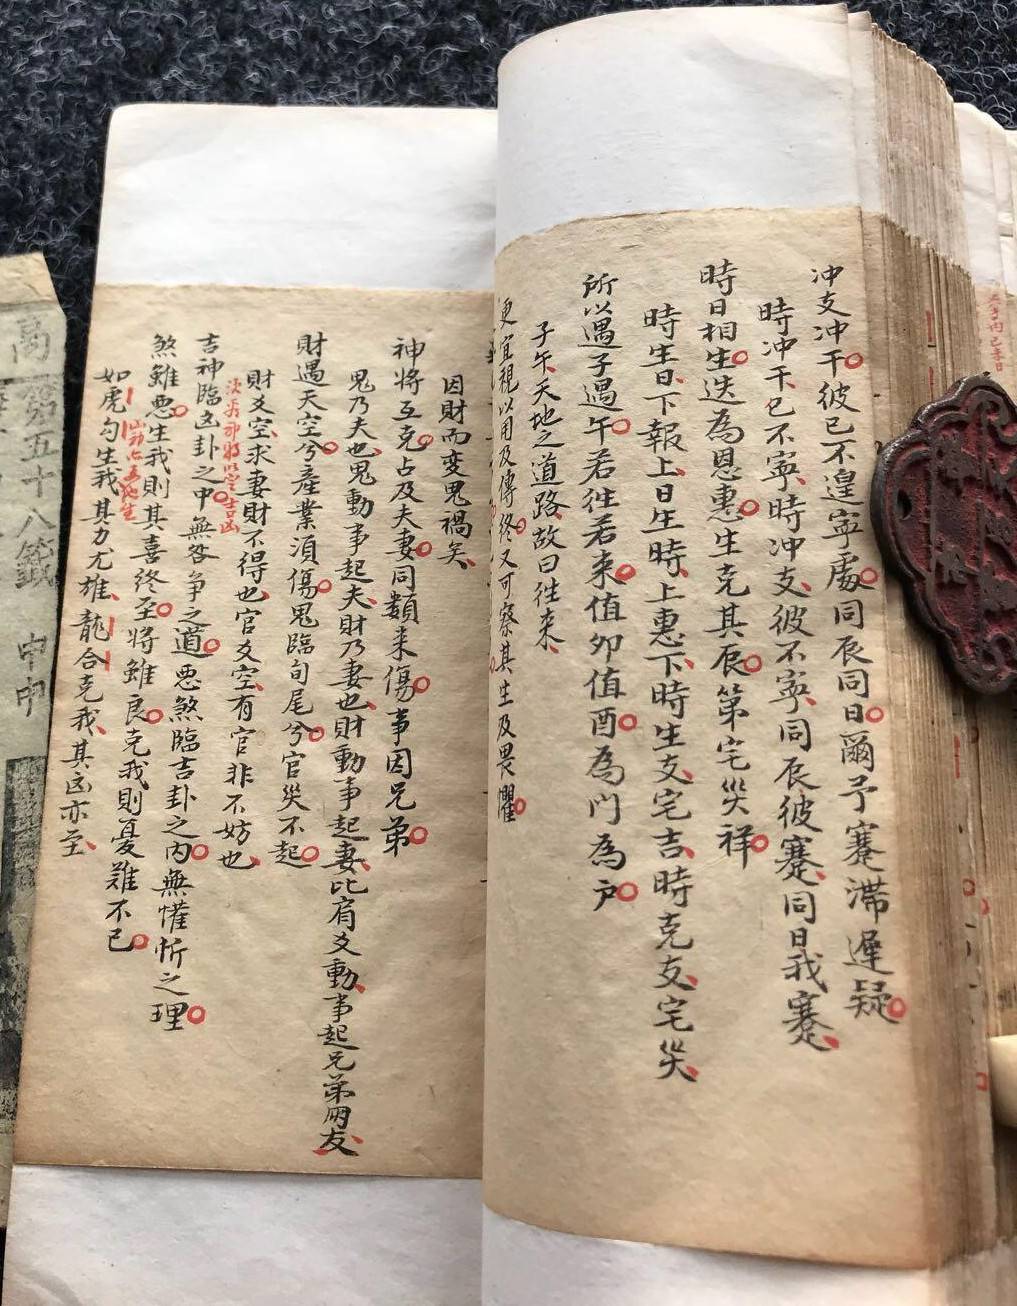 冲支冲干彼已不遑寧處同辰同日爾予蹇滯遲疑
時冲干已不寧時冲支彼不寧同辰彼蹇同日我蹇
時日相生迭為恩惠生克其辰第宅災祥
時生日下報上日生時上惠下時生支宅吉時克支宅災
所以遇子遇午若往若來值卯值酉為門為戶
子午天地之道路故曰往來
更宜視以用及傳終又可察其生及畏懼
因財而變鬼禍矣
神將互克占及夫妻同類来傷事因兄弟
鬼乃夫也鬼動事起夫財乃妻也財動事起妻比肩爻動事起兄弟朋友
財遇天空兮產業須傷鬼臨勾尾兮官災不起
財爻空求妻財不得也官爻空有官非不妨也
吉凶
吉神臨凶卦之中無咎爭之道惡煞臨吉卦之內無懽忻之理
煞雖惡生我則其喜終至將雖良克我則憂難不已
如虎勾生我其力尤雄龍合克我其凶亦至
第五十八籤